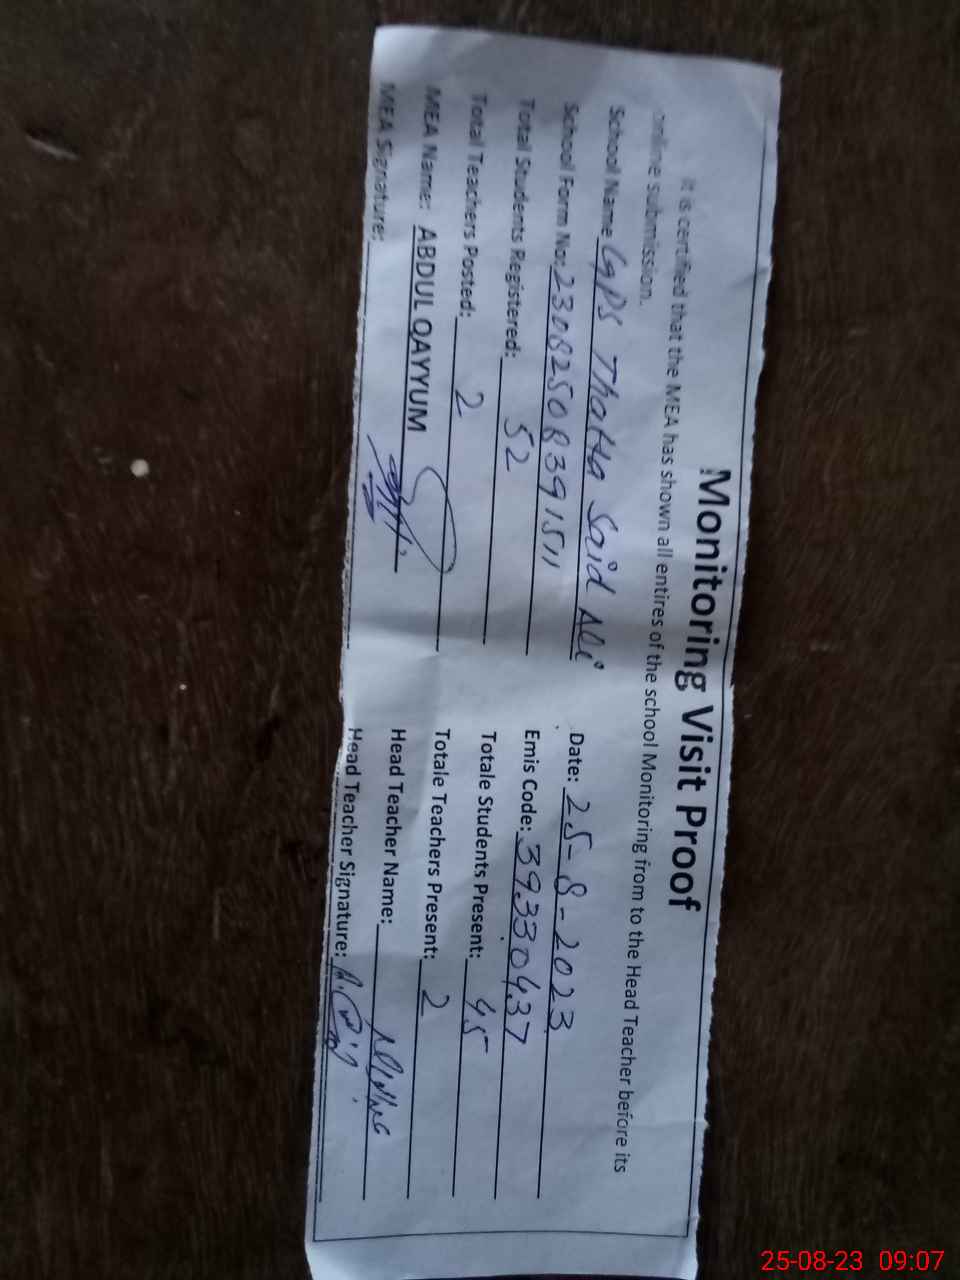 Monitoring Visit Proof
It is certified that the MEA has shown all entires of the school Monitoring from to the Head Teacher before its
online submission.
School Name GPS Thatta Said Ali Date: 25-8-2023
School Form No: 23082508391511 Emis Code: 39330437
Total Students Registered: 52 Totale Students Present: 45
Total Teachers Posted: 2 Totale Teachers Present: 2
MEA Name: ABDUL QAYYUM Head Teacher Name:
MEA Signature: Head Teacher Signature:
25-08-23 09:07